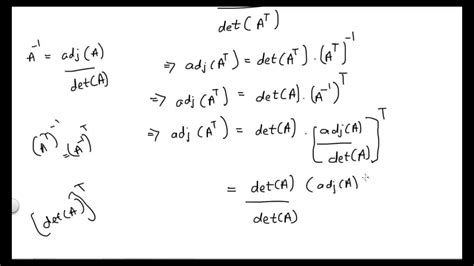 det(A^T)
A^-1 = adj(A) / det(A)
⇒ adj(A^T) = det(A^T) · (A^T)^-1
⇒ adj(A^T) = det(A) · (A^-1)^T
(A^T)^-1 = (A^-1)^T
⇒ adj(A^T) = det(A) · [adj(A) / det(A)]^T
[det(A)]^T
= det(A) / det(A) (adj(A)